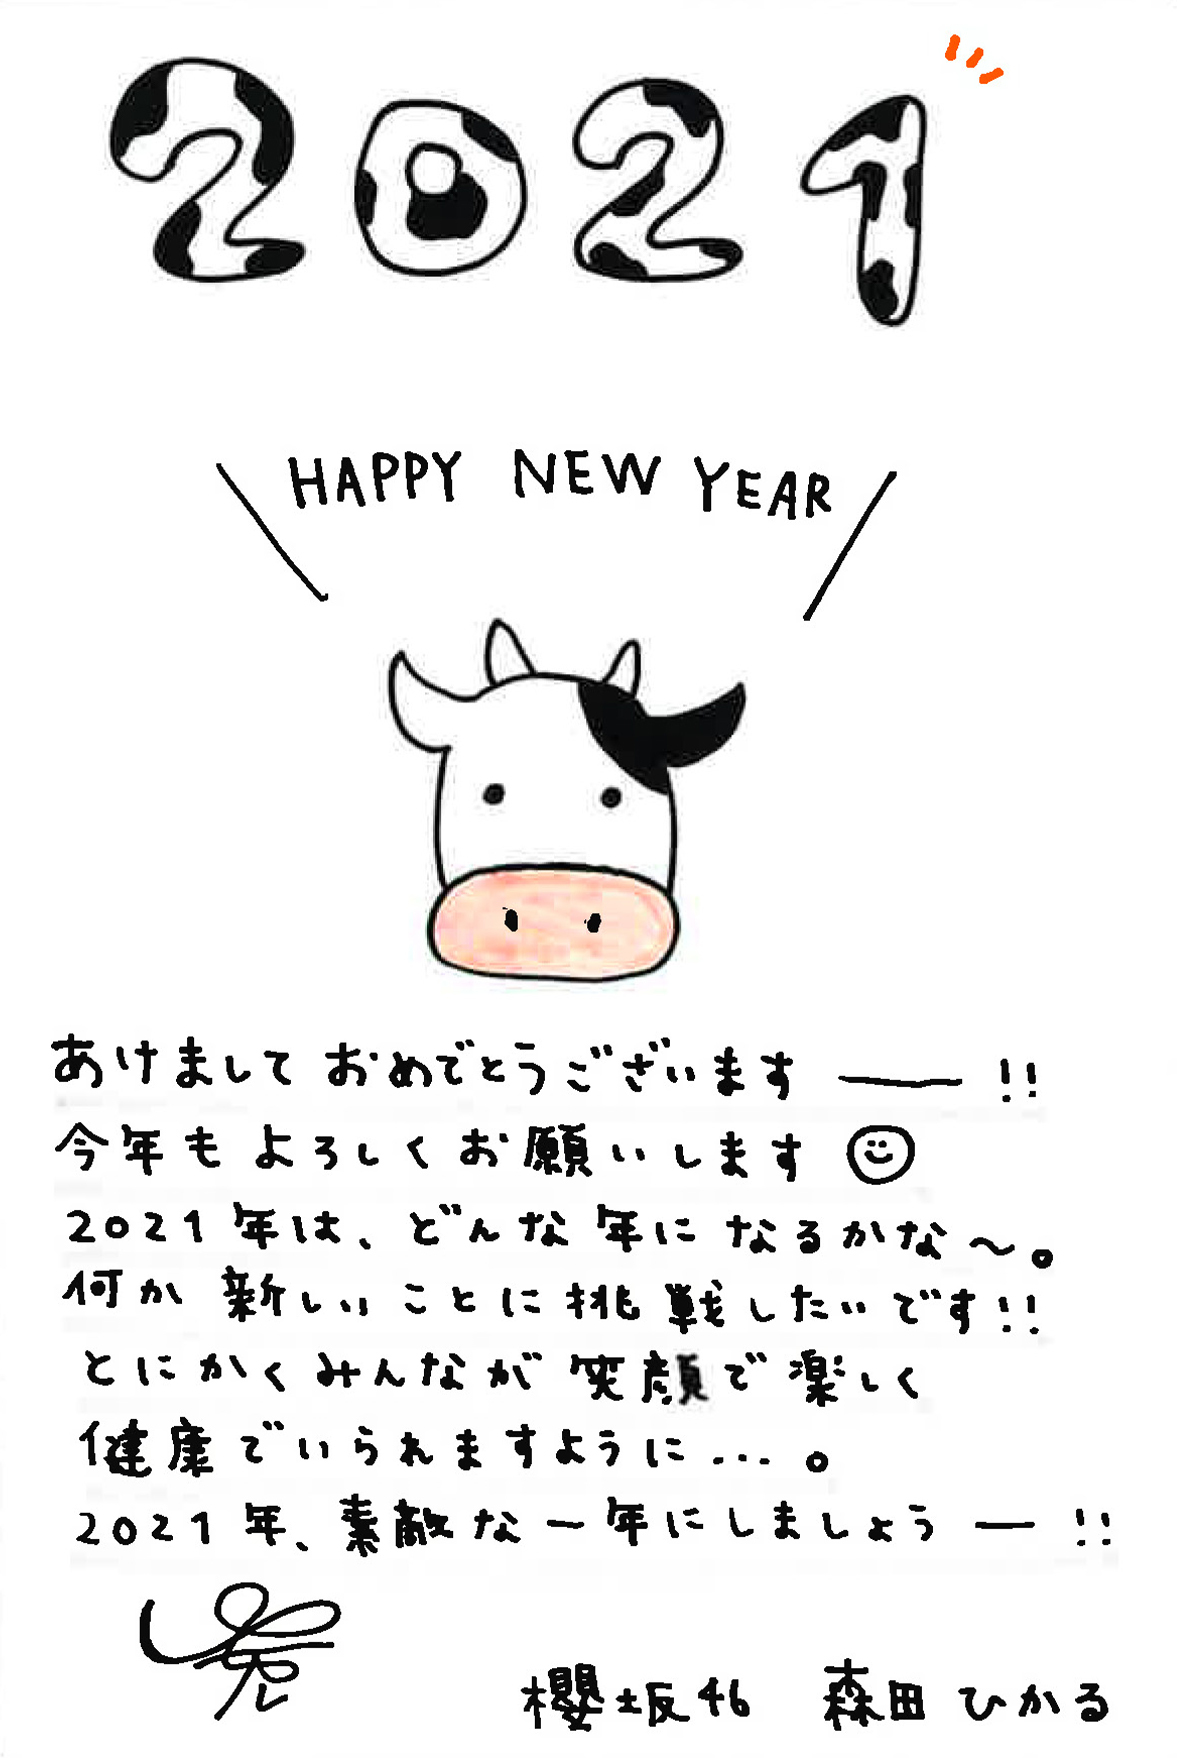 2021
HAPPY NEW YEAR
あけましておめでとうございます——!!
今年もよろしくお願いします
2021年は、どんな年になるかな〜。
何か新しいことに挑戦したいです!!
とにかくみんなが笑顔で楽しく
健康でいられますように...。
2021年、素敵な一年にしましょうー!!
櫻坂46 森田ひかる